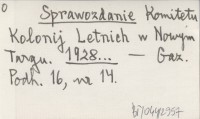 0
Sprawozdanie Komitetu
Kolonij Letnich w Nowym
Targu. 1928... — Gaz.
Podh. 16, nr 14.